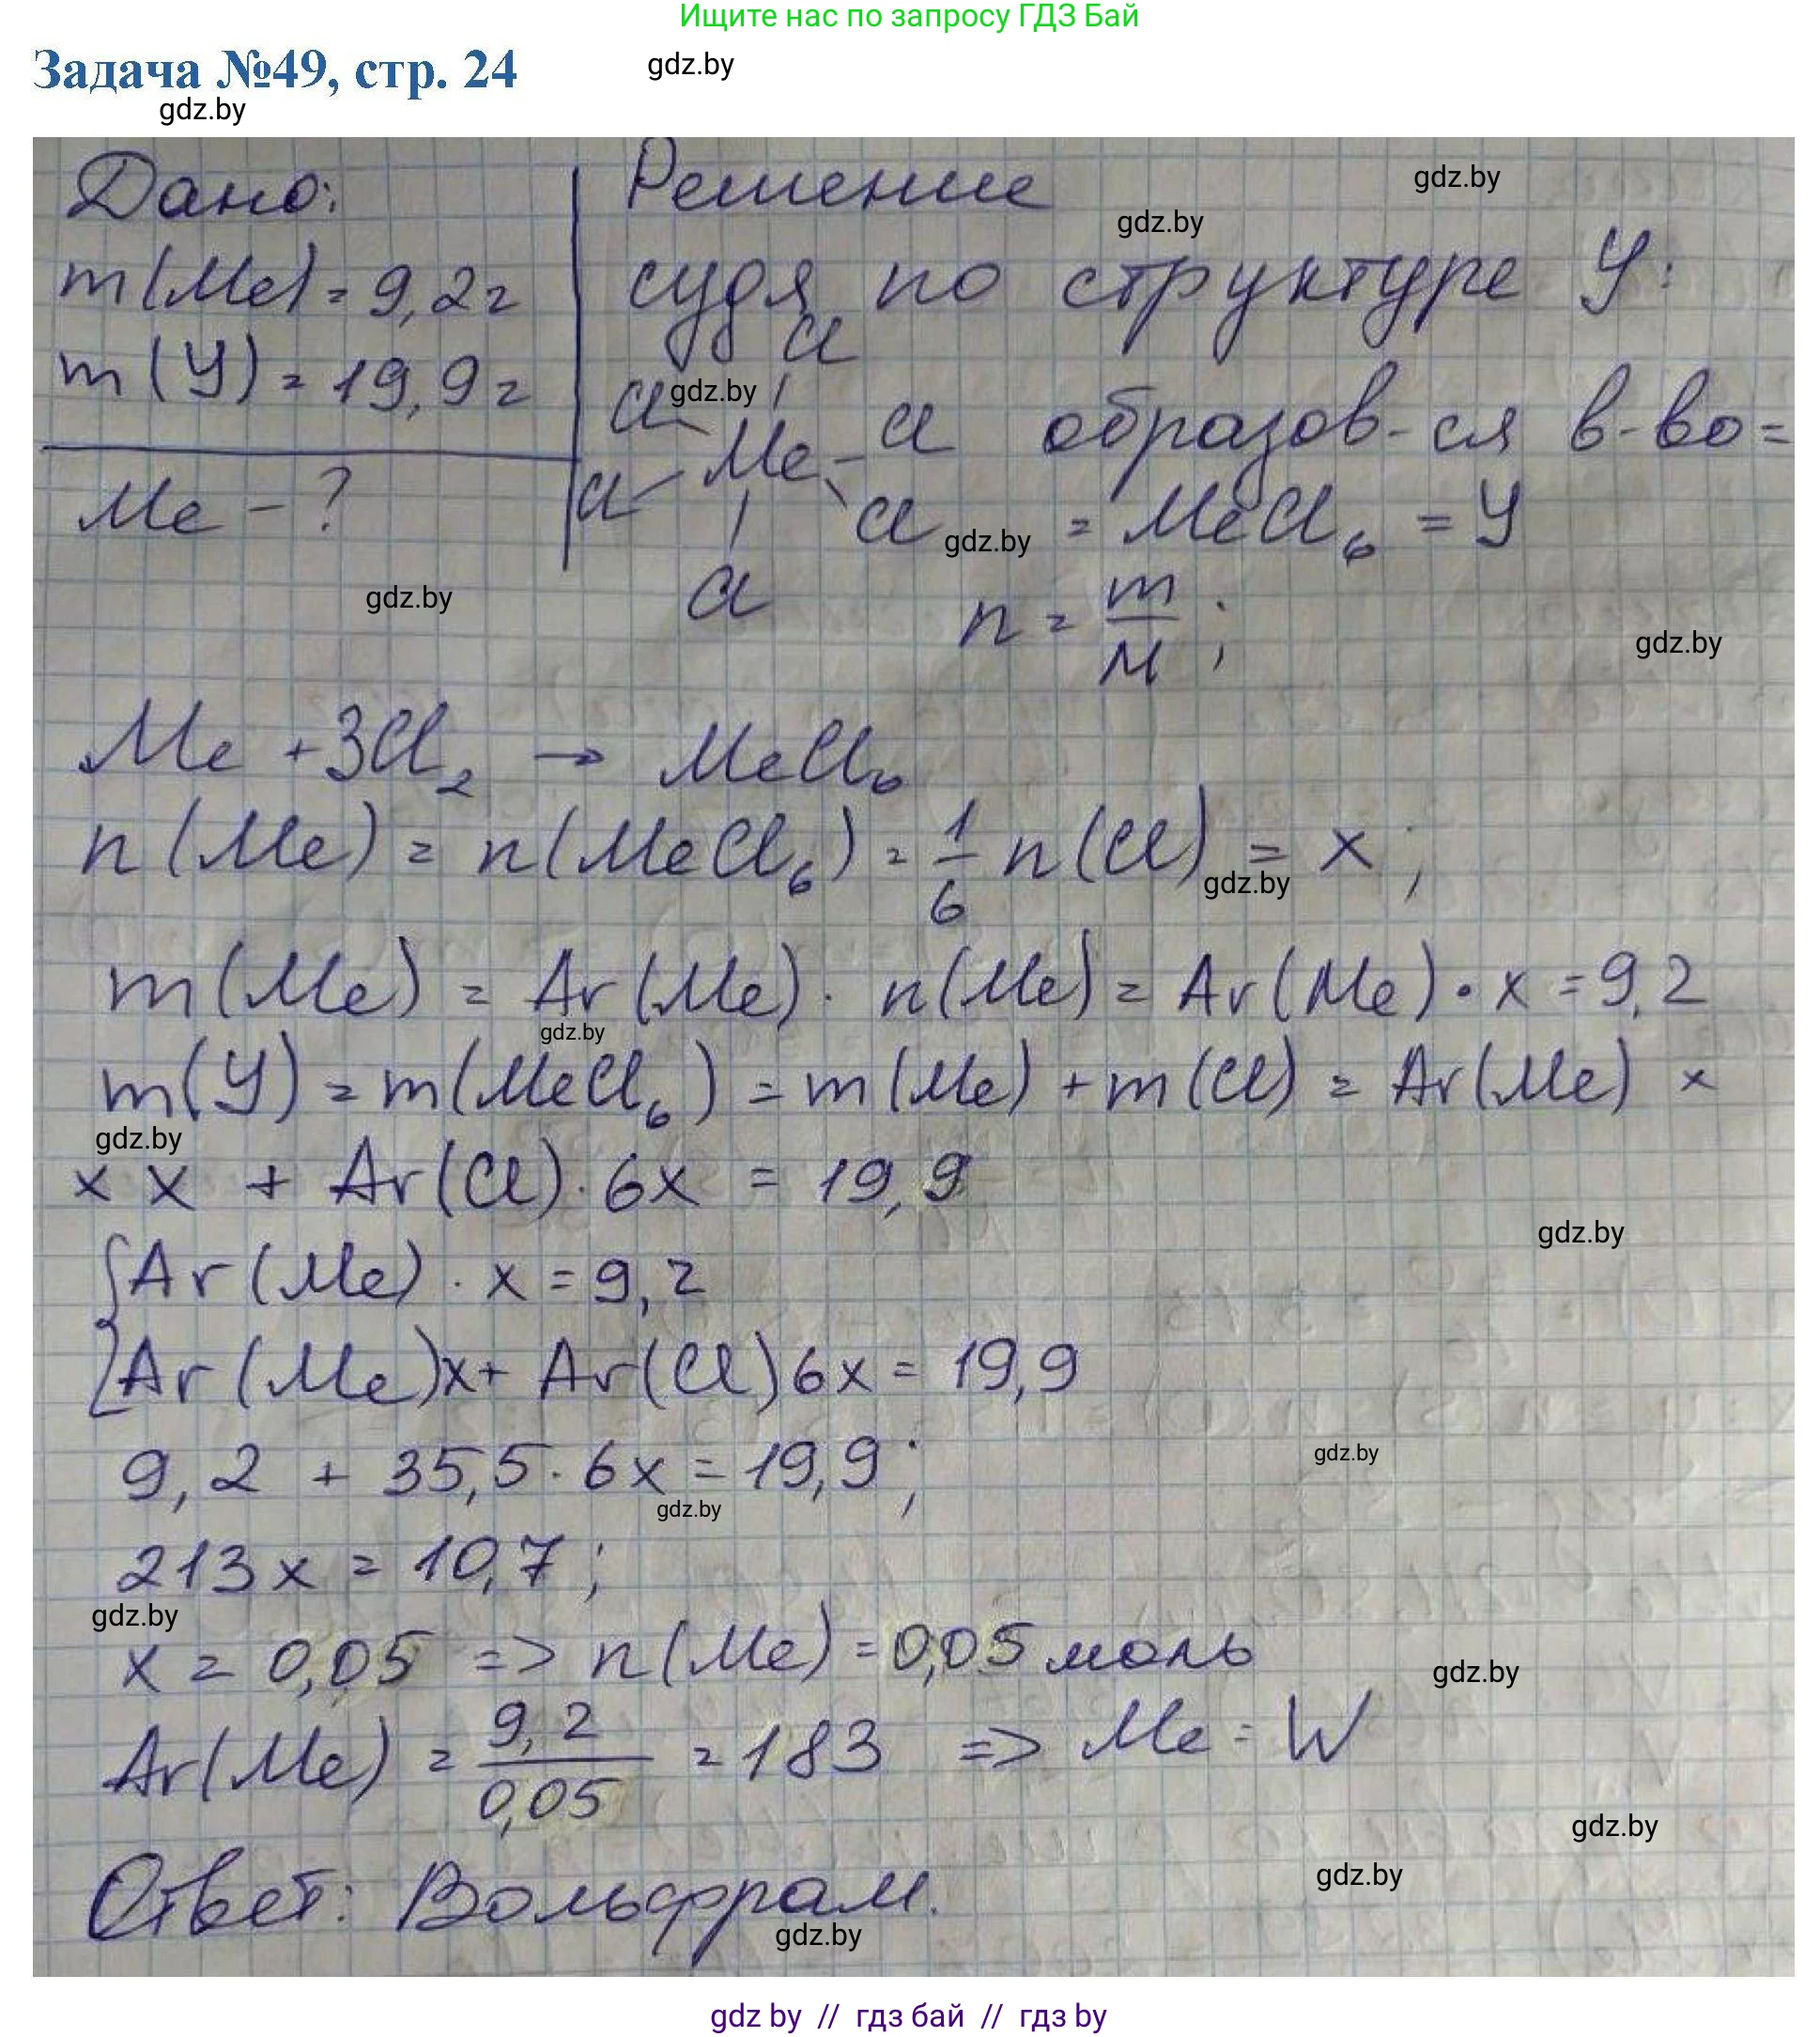 Ищите нас по запросу ГДЗ Бай
Задача №49, стр. 24
gdz.by
gdz.by
Дано:
m(Me) = 9,2г
m(У) = 19,9г
Me - ?
Решение
gdz.by
gdz.by
судя по структуре У:
Cl
Cl gdz.by
Me - Cl образов-ся в-во =
Cl Cl gdz.by = MeCl6 = У
Cl
gdz.by
n = m/M ;
gdz.by
Me + 3Cl2 → MeCl6
n(Me) = n(MeCl6) = 1/6 n(Cl) = x ;
gdz.by
m(Me) = Ar(Me) · n(Me) = Ar(Me) · x = 9,2
gdz.by
m(У) = m(MeCl6) = m(Me) + m(Cl) = Ar(Me) ×
gdz.by
× x + Ar(Cl) · 6x = 19,9
gdz.by
{ Ar(Me) · x = 9,2
Ar(Me)x + Ar(Cl)6x = 19,9
gdz.by
9,2 + 35,5 · 6x = 19,9 ;
gdz.by
213x = 10,7 ;
gdz.by
x = 0,05 => n(Me) = 0,05 моль
gdz.by
Ar(Me) = 9,2/0,05 = 183 => Me = W
gdz.by
gdz.by
Ответ: Вольфрам.
gdz.by
gdz by // гдз бай // гдз by